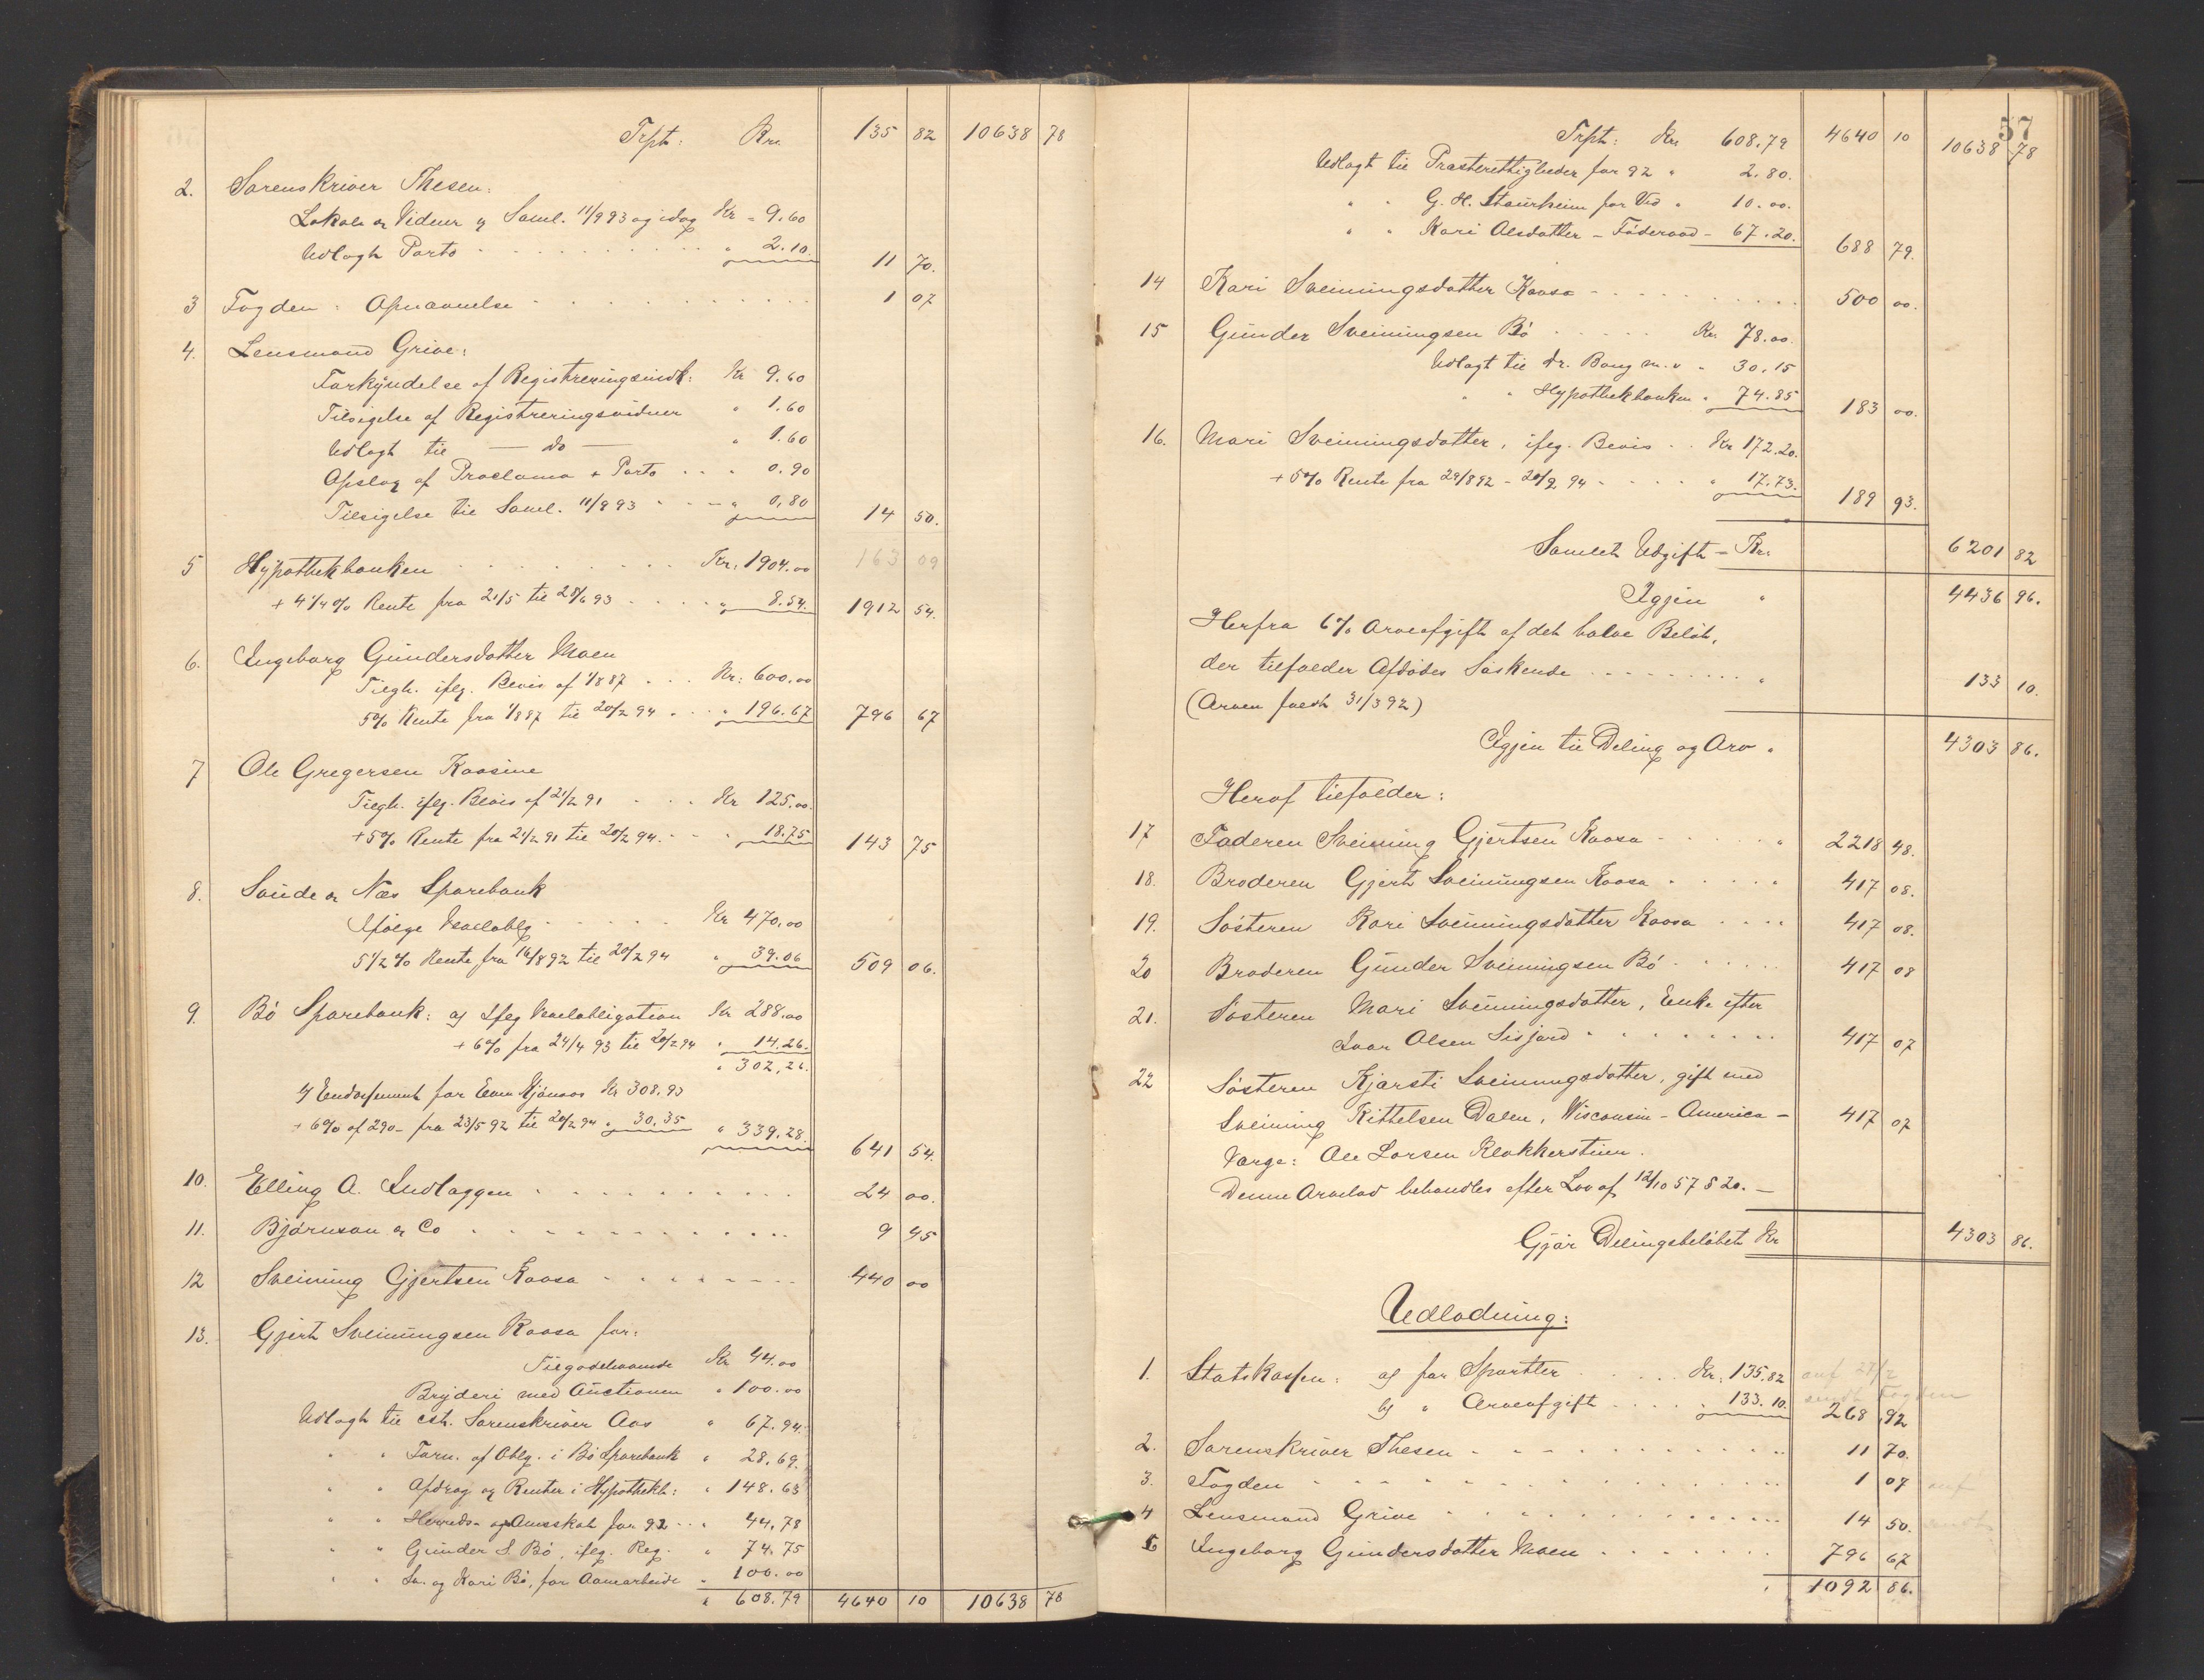 Trpt: Kr. 135 82 10638 78
2. Sorenskriver Thesen:
Lokale og Vidner y Saml. 11/9 93 og idag Kr " 9.60
Udlagt Porto " 2.10. 11 70.
3 Fogden: Opnævnelse 1 07
4. Lensmand Grive:
Forkyndelse af Registreringsindk: Kr 9.60
Tilsigelse af Registreringsvidner " 1.60
Udlagt til — do — " 1.60
Opslag af Proclama + Porto " 0.90
Tilsigelse til Saml. 11/9 93 " 0,80 14 50.
5 Hypothekbanken Kr: 1904.00 163 09
+ 4 1/4 % Rente fra 21/5 til 28/6 93 " 8.54. 1912 54.
6. Ingeborg Gundersdatter Moen
Tilgh. iflg. Bevis af 1/8 87 Kr: 600.00
5% Rente fra 1/8 87 til 20/2 94 " 196.67 796 67
7 Ole Gregersen Kaasine
Tilgh. iflg. Bevis af 21/2 91 Kr 125.00.
+ 5% Rente fra 21/2 91 til 20/2 94. " 18.75 143 75
8. Saude og Næs Sparebank
Ifølge Vexeloblg Kr 470,00
5 1/2 % Rente fra 16/8 92 til 20/2 94 " 39.06 509 06.
9. Bø Sparebank: a) Iflg Vexelobligation Kr 288.00
+ 6% fra 24/4 93 til 20/2 94 " 14.26.
" 302,26.
b) Endossement for Even Kr 308.93
+ 6% af 290 - fra 23/5 92 til 20/2 94 " 30.35 " 339.28. 641 54.
10. Elling A. Indlaggen 24 00.
11. Bjørnson & Co 9 45
12 Sveinung Gjertsen Kaasa 440 00
13. Gjert Sveinungsen Kaasa for:
Tilgodehavende Kr 44.00
Bryderi med Auctionen " 100.00
Udlagt til cst. Sorenskriver Aas " 67.94.
" " Forn. af Oblg. i Bø Sparebank " 28.69.
" " Afdrag og Renter i Hypothekb: " 148.63
" " Herreds- og Amtsskat for 92 " 44,78
" " Gunder S. Bø, iflg. Reg. " 74.75
" " Sv. og Kari Bø, for Aanearbeide " 100.00
" 608.79 4640 10 10638 78
57
Trpt: Kr 608.79 4640 10 10638 78
Udlagt til Præsterettigheder for 92 " 2.80.
" " G. H. Staurheim for Ved " 10.00.
" " Kari Olsdatter - Föderaad - 67.20. 688 79.
14 Kari Sveinungsdatter Kaasa 500 00.
15 Gunder Sveinungsen Bø Kr. 78.00.
Udlagt til Dr. Bang m.v " 30.15
" " Hypothekbanken " 74.85 183 00.
16. Mari Sveinungsdatter, iflg. Bevis Kr 172.20.
+ 5% Rente fra 29/8 92 - 20/9 94 " 17.73. 189 93.
Samlet Udgift - Kr. 6201 82
Igjen " 4436 96.
Herfra 6% Arveafgift af det halve Beløb,
der tilfalder Afdødes Søskende " 133 10.
(Arven faldt 31/3 92)
Igjen til Deling og Arv " 4303 86.
Heraf tilfalder:
17 Faderen Sveinung Gjertsen Kaasa " 2218 48.
18. Broderen Gjert Sveinungsen Kaasa " 417 08.
19. Søsteren Kari Sveinungsdatter Kaasa 417 08.
20 Broderen Gunder Sveinungsen Bø 417 08
21. Søsteren Mari Sveinungsdatter, Enke efter
Ivar Olsen Sisjord 417 07
22 Søsteren Kjersti Sveinungsdatter, gift med
Sveinung Kittelsen Dalen, Wisconsin - America - 417 07
Værge: Ole Larsen Klokkerstuen.
Denne Arvelod behandles efter Lov af 12/10 57 § 20. —
Gjør Delingsbeløbet Kr 4303 86.
Udlodning:
1. Statskassen: a) for Sportler Kr. 135.82
b) " Arveafgift " 133.10. 268 92
2. Sorenskriver Thesen 11 70.
3. Fogden 1 07
4 Lensmand Grive 14 50.
5 Ingeborg Gundersdatter Moen 796 67
" 1092 86.